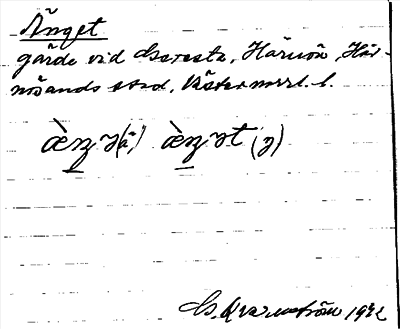 Änget
gärde vid Geresta, Härnön, Här-
nösands stad, Västernorrl. l.
æ̀ŋɜ(a) æ̀ŋət (y)
G. Kvarnström 1942